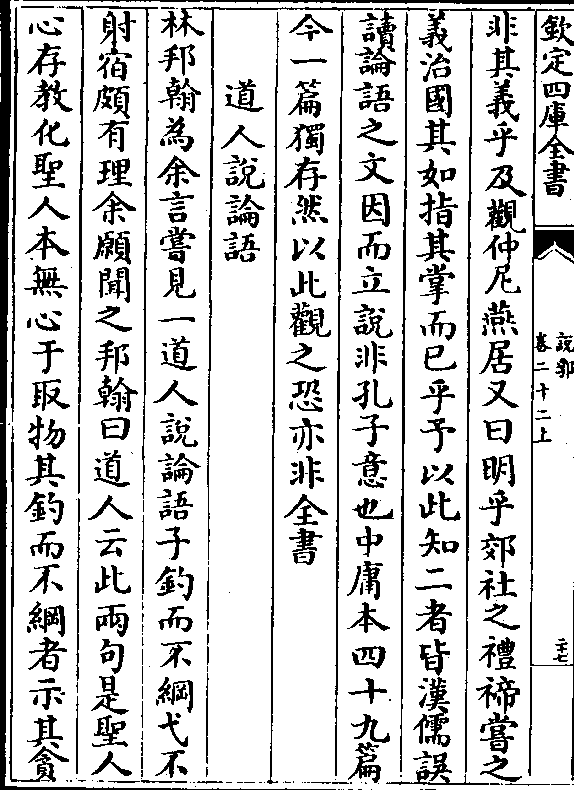 欽定四庫全書
說郛
卷二十二上
二十七
非其義乎及觀仲尼燕居又曰明乎郊社之禮禘嘗之
義治國其如指其掌而已乎予以此知二者皆漢儒誤
讀論語之文因而立說非孔子意也中庸本四十九篇
今一篇獨存然以此觀之恐亦非全書
道人說論語
林邦翰為余言嘗見一道人說論語子釣而不綱弋不
射宿頗有理余願聞之邦翰曰道人云此兩句是聖人
心存教化聖人本無心于取物其釣而不綱者示其貪